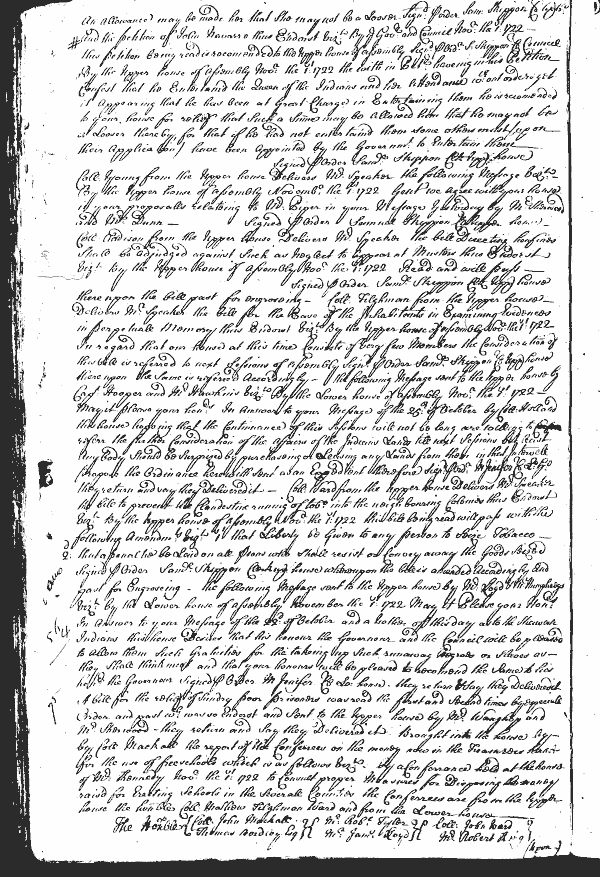 An Allowance may be made her that She may not be a Looser Sign'd p Order Sam: Skippon Cl up ho:
And the petition of John Navarro thus Endorst Viz.t By the Gov.r and Council Nov.r the 1.st 1722
this petition being read is recomended to the Upper house of Assembly Sign'd p Ord.r S. Skippon Cl Council
By the Upper house of Assembly Nov.r the 1.st 1722 the with in Pet.r having in this Petition
Confest that he Entertained the Queen of the Indians and her Attendance without order yet
it Appearing that he has been at Great Charge in Entertaining them he is recomended
to your house for relief that Such a Sume may be Allowed him that he may not be
a Looser thereby, for that if he had not entertained them some others must (upon
their Application) have been Appointed by the Governour to Entertain them
Signed p Order Sam.l Skippon Cl up house
Coll. Young from the Upper house Delivers M.r Speaker the following Message Viz.t
By the Upper house of Assembly Novemb.r the 1.st 1722 Gent we agree with your house
in your proposalls relating to M.r Piper in your Message Yesterday by M.r
and M.r Dunn Signed p Order Samuel Skippon Cl upper house
Coll. Addison from the Upper house Delivers M.r Speaker the bill Directing how fines
Shall be adjudged against Such as neglect to appear at Musters thus Endorst
Viz.t By the Upper House of Assembly Nov.r the 1.st 1722 Read and will pass
Signed p Order Sam.l Skippon Cl up house
there upon the bill past for engrossing Coll. Tilghman from the Upper house
Delivers M.r Speaker the bill for the Ease of the Inhabitants in Examining Evidences
in perpetuale Memory thus Endorst Viz.t By the Upper house of Assembly Nov.r the 1.st 1722
In regard that our house at this time Consists of very few Members the Consideration of
this bill is referred to next Sessions of Assembly Sign'd p Order Sam.l Skippon Cl up house
there upon the Same is referred Accordingly the following Message sent to the Upper house by
Cap.t Hooper and M.r Hawkins Viz.t By the Lower house of Assembly Nov.r the 1.st 1722
May it please your hon.rs In Answer to your Message of the 25.th of October by Coll. Holland
this house hoping that the Continuance of this Sessions will not be long are willing to
referr the further Consideration of the affairs of the Indians Lands till next Sessions but Least
Any body Should be Surprized by purchasing or Leasing any Lands from them in that Intervale
prepare the Ordinance herewith sent as an Expedient therefore Sign'd p Ord.r M Jenifer Cl Lo ho:
they return and say they Delivered it Coll. Ward from the Upper house Delivers M.r Speaker
the bill to prevent the Clandestine running of tob.o into the neighbouring Colonies thus Endorst
Viz.t By the Upper house of Assembly Nov.r the 1.st 1722 this bill being read will pass with the
following Amendm.t Viz.t 1.st that Liberty be Given to any person to Seize Tobacco
2 that a penaltie be Laid on all persons who Shall resist or Convey away the Goods Seized
Signed p Order Sam.l Skippon Cl up house whereupon the bill is amended Accordingly And
past for Engrossing the following Message sent to the Upper house by M.r Loyd & M.r
Viz.t by the Lower house of Assembly November the 1.st 1722 May it Please your Hon.rs
In Answer to your Message of the 22.d of October and another of this day as to the Shawan
Indians this house Desires that his honour the Governour and the Council will be pleased
to allow them Such Gratuities for the taking up Such runaway Negroes or Slaves as
they Shall think meet and that your honours will be pleased to recomend the Same to his
hon.r the Governour Signed p Order M Jenifer Cl Lo: house they return & Say they Delivered it
A bill for the relief of Sundry poor prisoners was read the first and Second times by especiale
Order and past w.ch was so Endorst and Sent to the Upper house by M.r and
M.r Sherwood they return and Say they Delivered it Brought into the house
by Coll. Mackall the report of the Conferrees on the money now in the Treasurers hands
for the use of free Schools which is as follows Viz.t At a Conference held at the house
of M.r Kennedy Nov.r the 1.st 1722 to Consult proper Measures for Disposing the money
raised for Erecting Schools in the Severale Counties the Conferrees are from the Upper
house the hon'bles Coll. Mathew Tilghman Ward and from the Lower house
The Hon'ble Coll. John Mackall M.r Rob.t Tyler Coll. John Ward
Thomas Bordley Esq M.r James Lloyd M.r Robert King
(upon